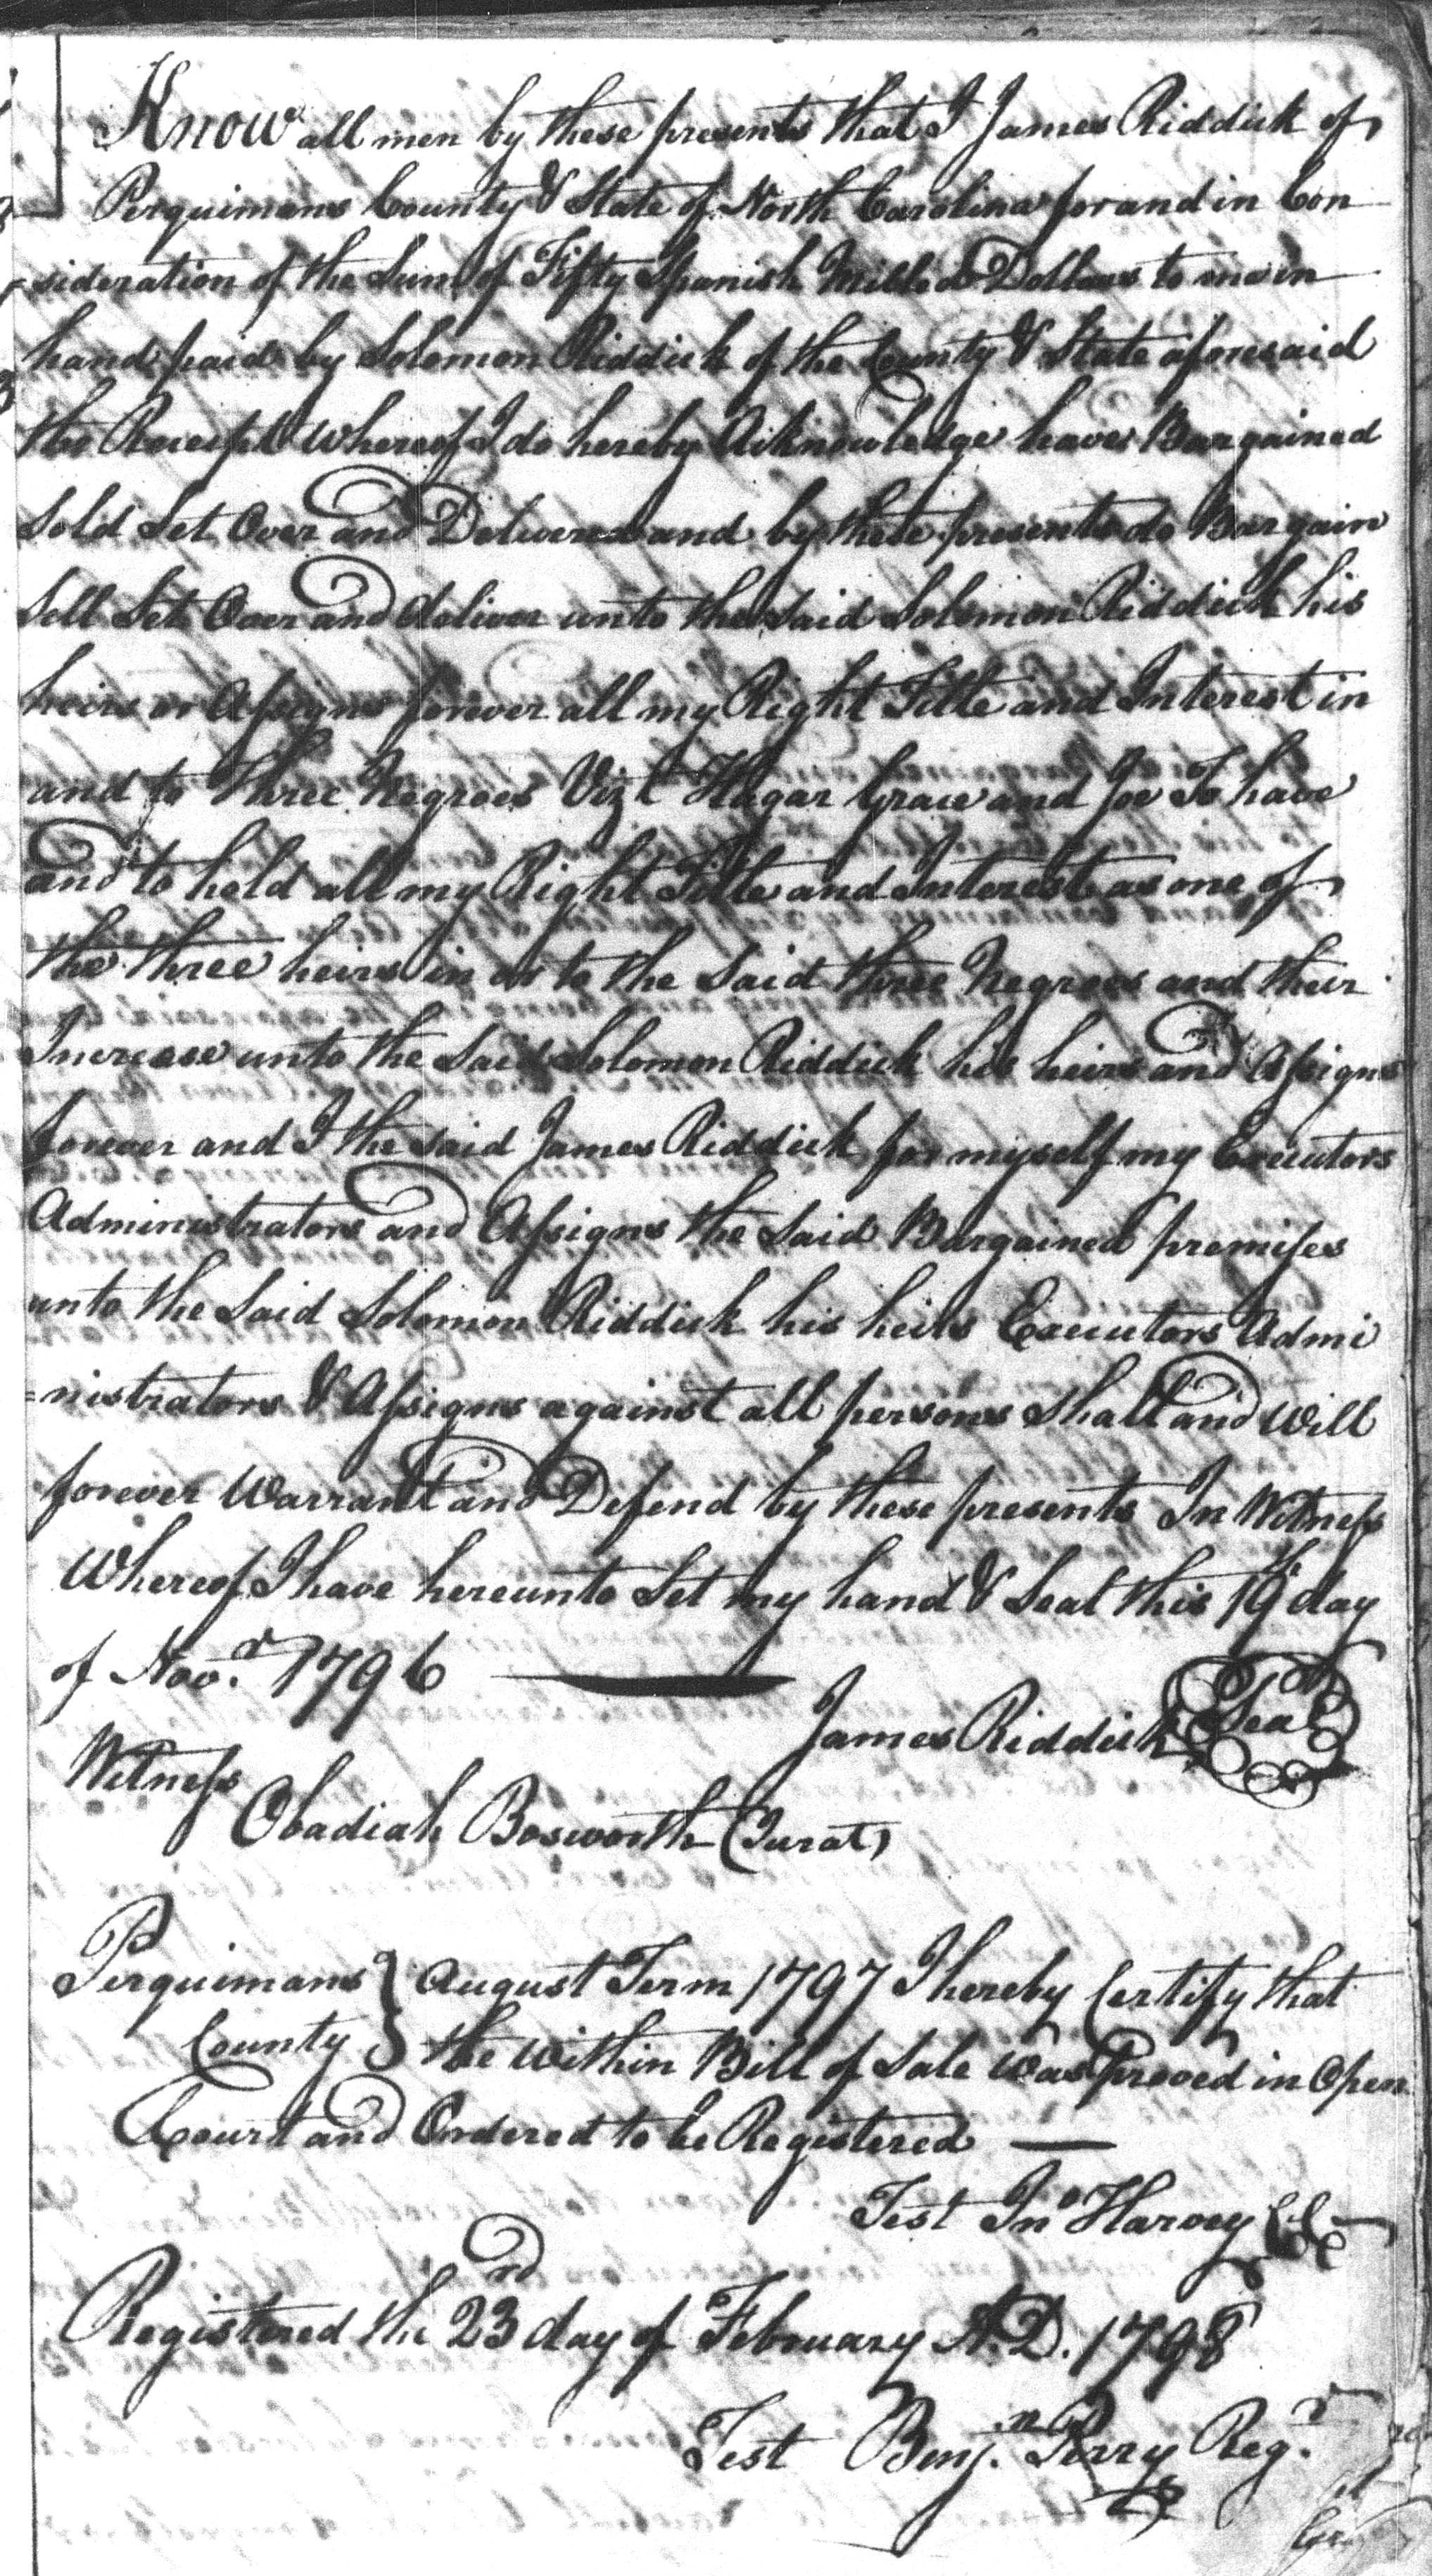 Know all men by these presents that I James Riddick of
Perquimans County & State of North Carolina for and in Con
sideration of the Sum of Fifty Spanish Milled Dollars to me in
hand paid by Solomon Riddick of the County & State aforesaid
the Receipt Whereof I do hereby Acknowledge have Bargained
Sold Set Over and Delivered and by these presents do Bargain
Sell Set Over and deliver unto the Said Solomon Riddick his
heirs or Assigns forever all my Right Title and Interest in
and to three Negroes Vizt Hagar Grace and Joe To have
and to hold all my Right Title and Interest as one of
the three heirs in or to the Said three Negroes and their
Increase unto the Said Solomon Riddick his heirs and Assigns
forever and I the Said James Riddick for myself my Executors
Administrators and Assigns the Said Bargained premises
unto the Said Solomon Riddick his heirs Executors Admi
=nistrators & Assigns against all persons Shall and Will
forever Warrant and Defend by these presents In Witness
Whereof I have hereunto Set my hand & Seal this 19th day
of Novr. 1796
James Riddick Seal
Witness
Obadiah Bosworth (Jurat)
Perquimans } August Term 1797 I hereby Certify that
County } the Within Bill of Sale Was proved in Open
Court and Ordered to be Registered
Test Jno Harvey
Registered the 23rd day of February A.D. 1798
Test Benjn. Perry Regr.